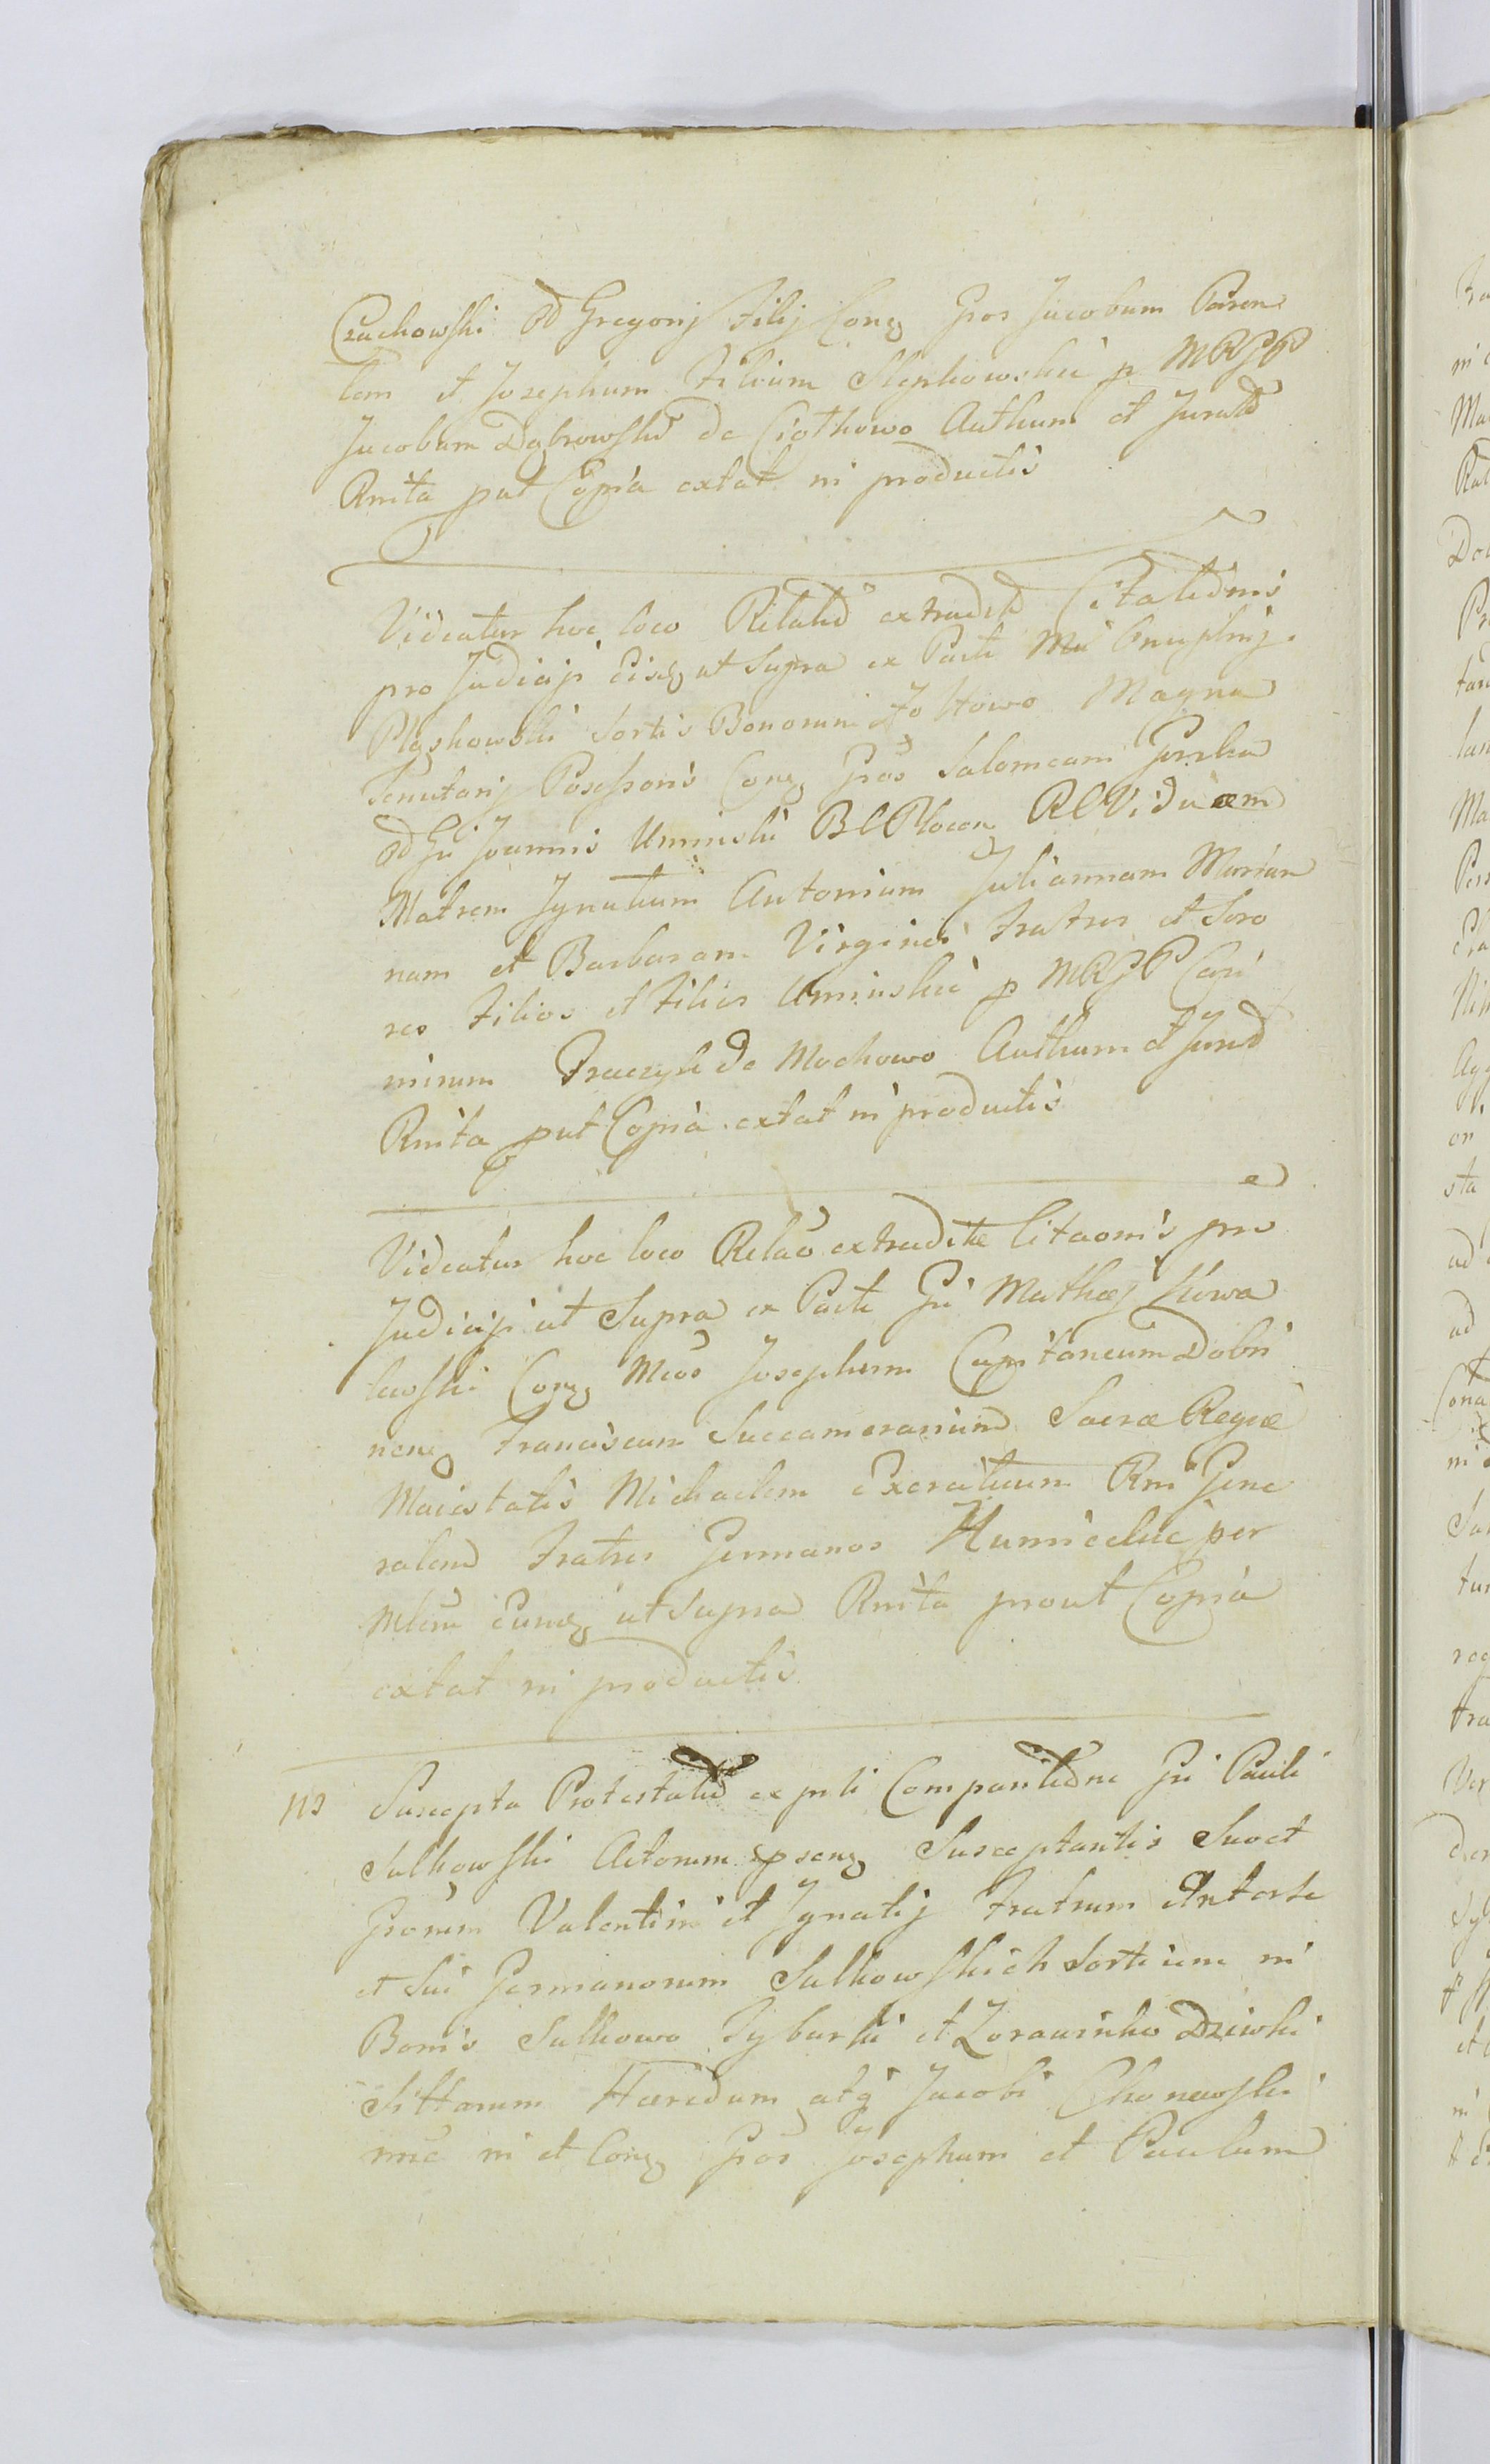 Czachowski od Gregorij Filij Conq Gros Jacobum Paren
tem et Josephum Filium Slepkowskie p MRGP
Jacobum Dąbrowski de Ciothowo Authum et Jurat
Rnita put Copia extat in productis
Videatur hoc loco Relatio extradit Citationis
pro Judicijs Eisq ut Supra ex Parte Mci Onuphrij
Pląskowski Sortis Bonorum Zoltowo Magna
Tenutarij Possessoris Conq Gros Salomeam Gorska
od Gi Joannis Uminski BC Plocen RC Viduam
Matrem Ignatium Antonium Juliannam Marian
nam et Barbaram Virgines Fratres et Soro
res Filios et Filias Uminskie p MRGP Casi
mirum Fraczyk de Mochowo Authum et Jurat
Rnita put Copia extat in productis
Videatur hoc loco Relao extraditæ Citaonis pro
Judicijs ut Supra ex Parte Gi Mathæj Kowa
lewski Conq Mcos Josephum Capitaneum Dobri
nenq Franciscum Succamerarium Sacræ Regiæ
Maiestatis Michaelem Exercituum Rni Gene
ralem Fratres Germanos Humieckie per
Mlem Eumq ut Supra Rnita prout Copia
extat in productis
ns Suscepta Protestatio ex pnti Comparitione Gi Pauli
Sulkowski Actorum psenq Susceptantis Suo et
Grorum Valentini et Ignatij Fratrum
et Sui Germanorum Sulkowskich Sortium in
Bonis Sulkowo Tyburki et Zorawinko Dziwki
Sittarum Hæredum atq Jacobi
nnie in et Conq Gros Josephum et Paulum